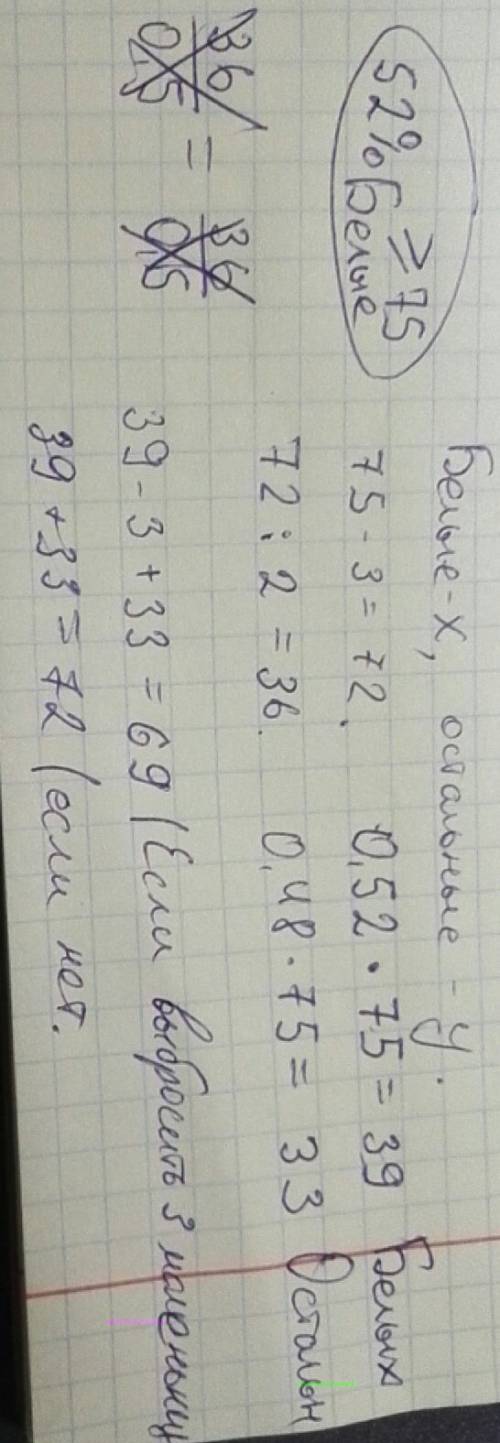 52% Б ≥ 75
Белые
36/0,5 = 36/0,5
Белые - х, остальные - у.
75 - 3 = 72. 0,52 · 75 = 39 Белых
72 : 2 = 36. 0,48 · 75 = 33 Остальн
39 - 3 + 33 = 69 (Если выбросить 3 маленьких
39 + 33 = 72 (если нет.